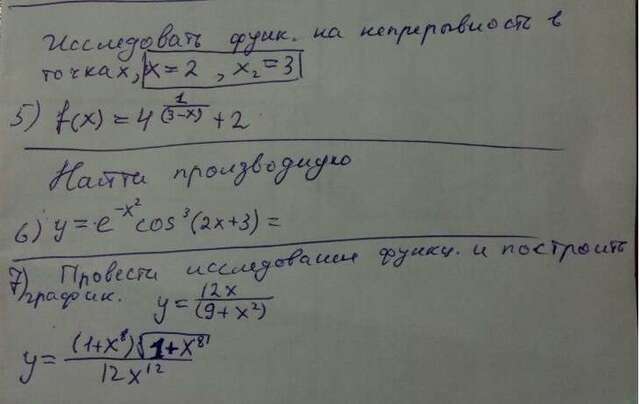 Исследовать функ. на непрерывность в
точках, x=2 , x₂=3
5) f(x) = 4^(1/(3-x)) + 2
Найти производную
6) y = e^(-x²) cos³(2x+3) =
7) Провести исследование функц. и построить
график. y = 12x/(9+x²)
y = (1+x⁸)√(1+x⁸)/12x¹²